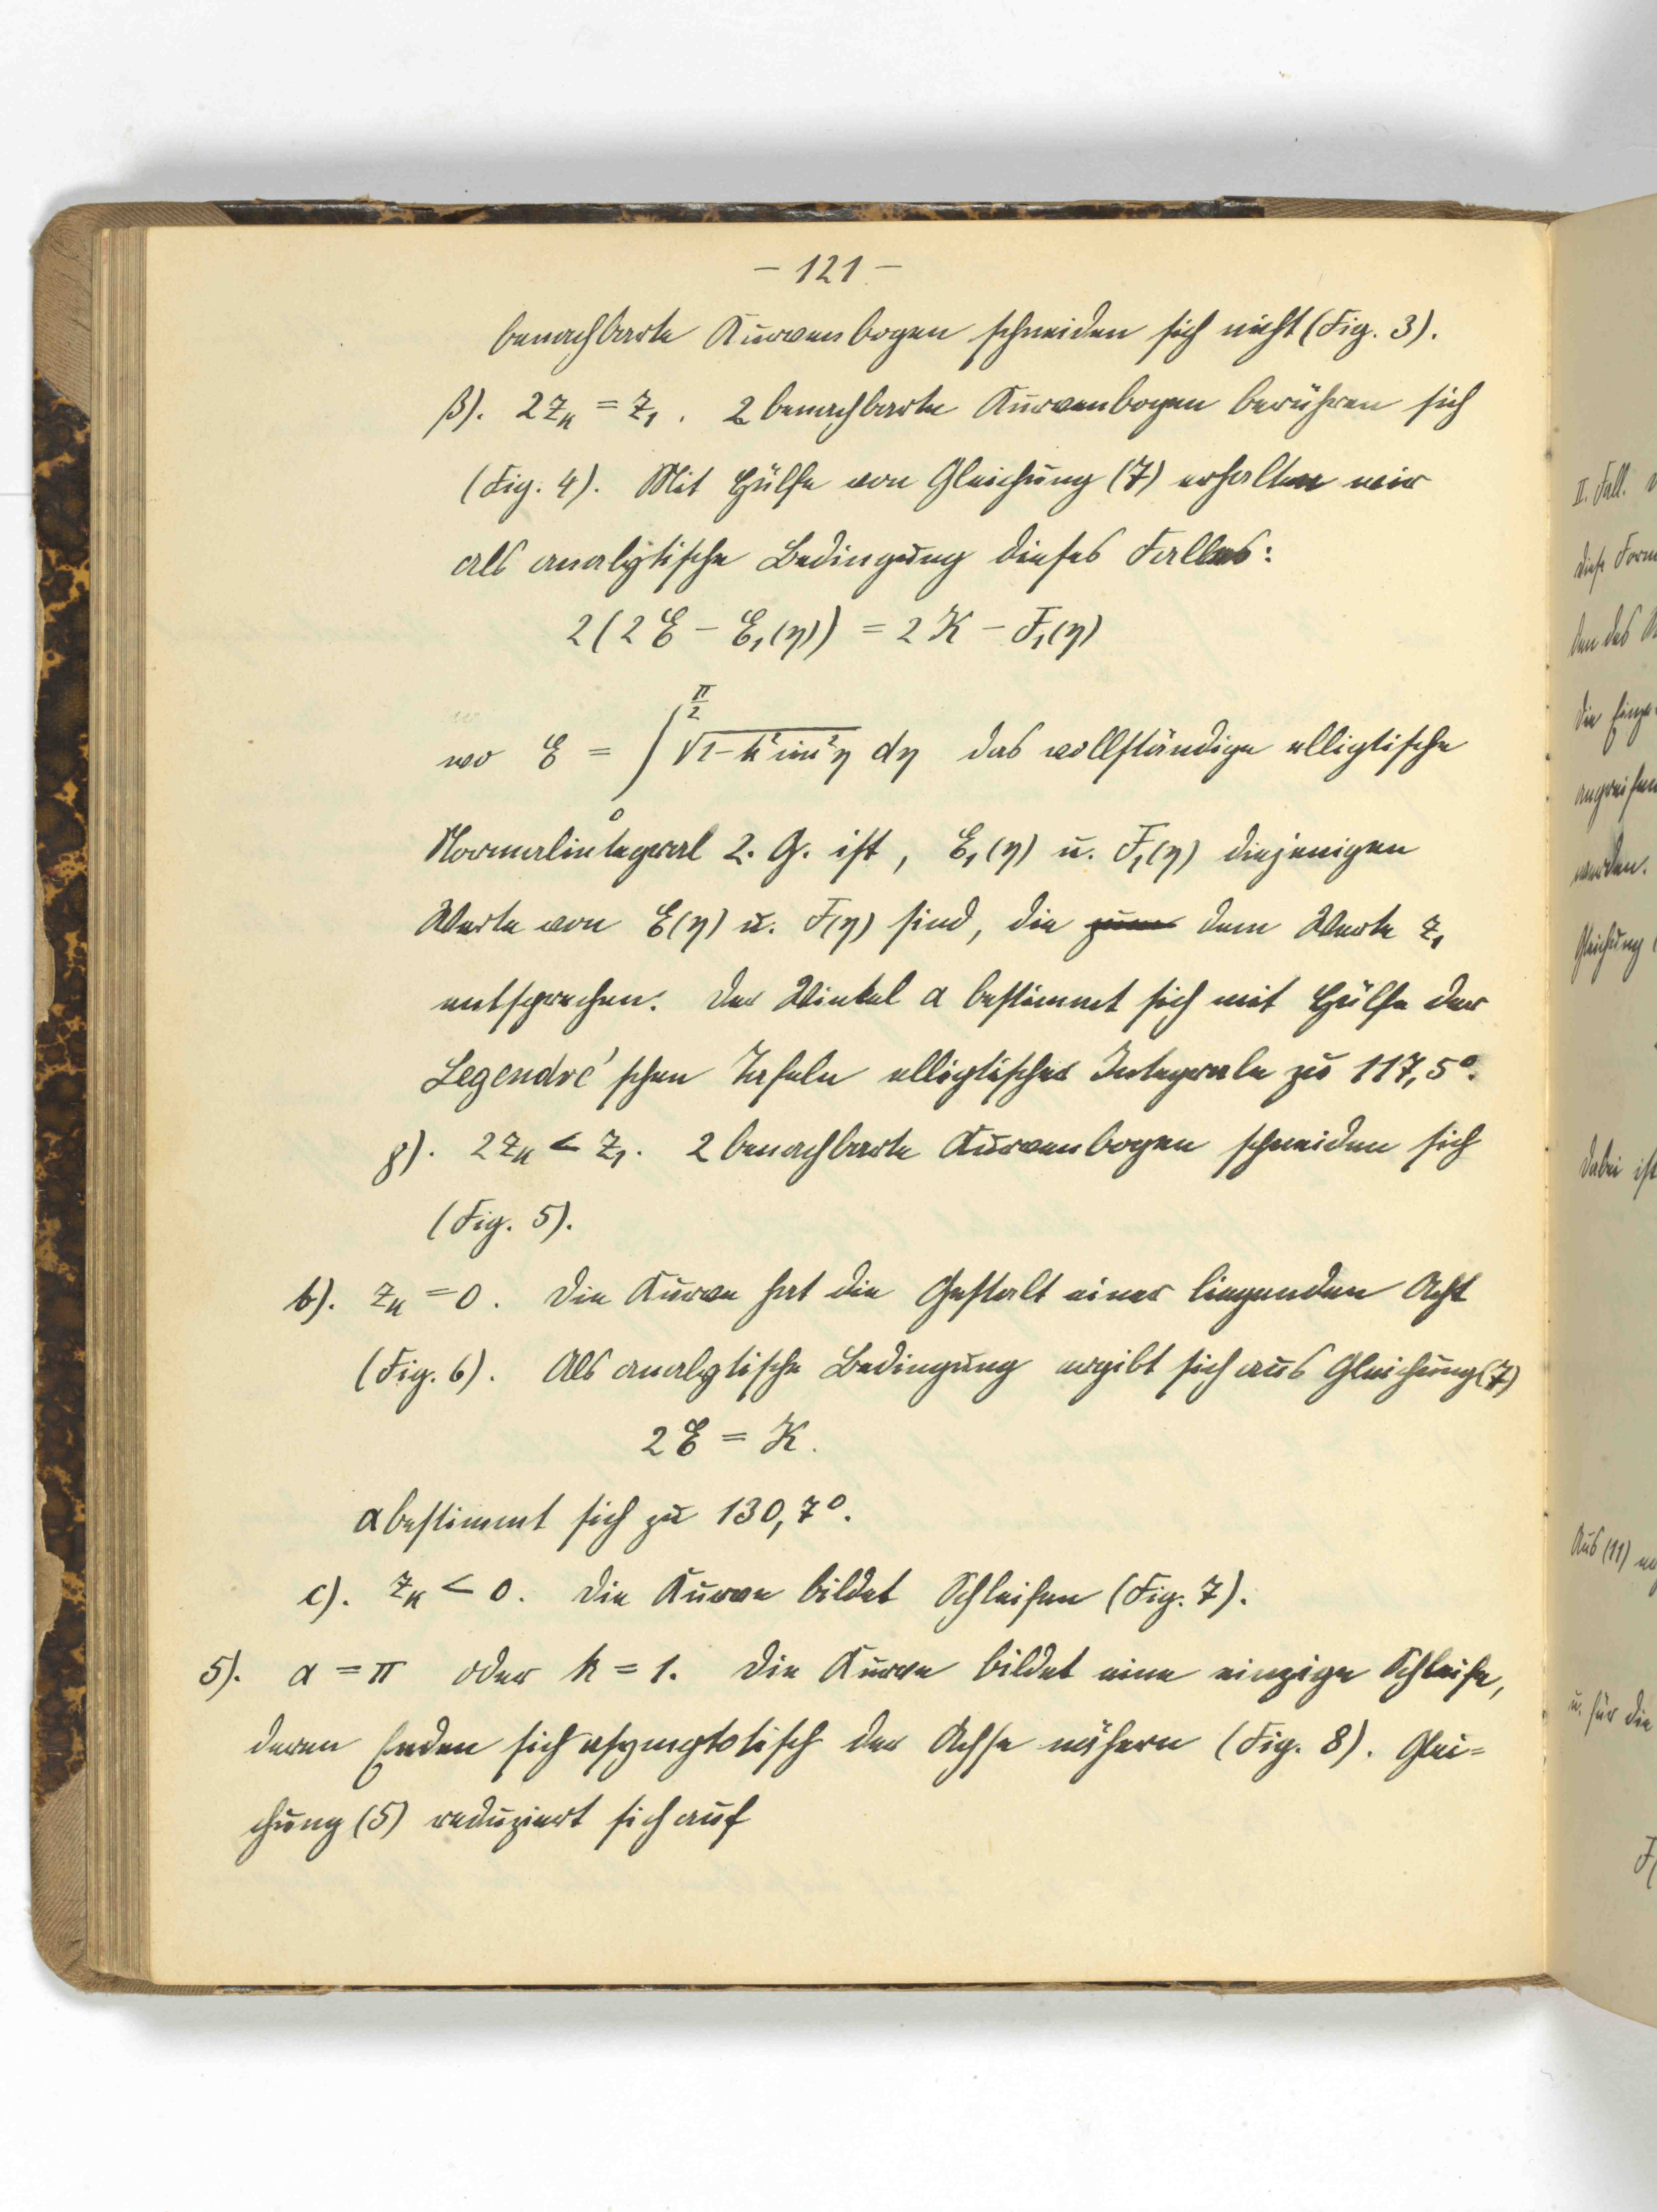 – 121 –
benachbarte Kurvenbogen schneiden sich nicht (Fig. 3).
β). 2 z_k = z_1. 2 benachbarte Kurvenbogen berühren sich
(Fig. 4). Mit Hülfe von Gleichung (7) erhalten wir
als analytische Bedingung dieses Falles:
2(2E – E_1(η)) = 2K – F_1(η)
wo E = ∫_0^{π/2} √1–k² sin²η dη das vollständige elliptische
Normalintegral 2. G. ist, E_1(η) u. F_1(η) diejenigen
Werte von E(η) u. F(η) sind, die zum dem Werte z_1
entsprechen. Der Winkel α bestimmt sich mit Hülfe der
Legendre'schen Tafeln elliptischer Integrale zu 117,5°.
γ). 2 z_k < z_1. 2 benachbarte Kurvenbogen schneiden sich
(Fig. 5).
b). z_k = 0. Die Kurve hat die Gestalt einer liegenden Acht
(Fig. 6). Als analytische Bedingung ergibt sich aus Gleichung (7)
2E = K.
α bestimmt sich zu 130,7°.
c). z_k < 0. Die Kurve bildet Schleifen (Fig. 7).
5). α = π oder k = 1. Die Kurve bildet eine einzige Schleife,
deren Enden sich asymptotisch der Achse nähern (Fig. 8). Glei=
chung (5) reduziert sich auf
II. Fall.
diese Form
den des
die Einge
werden.
Gleichung
dabei ist
Aus (11)
u. für die
F(